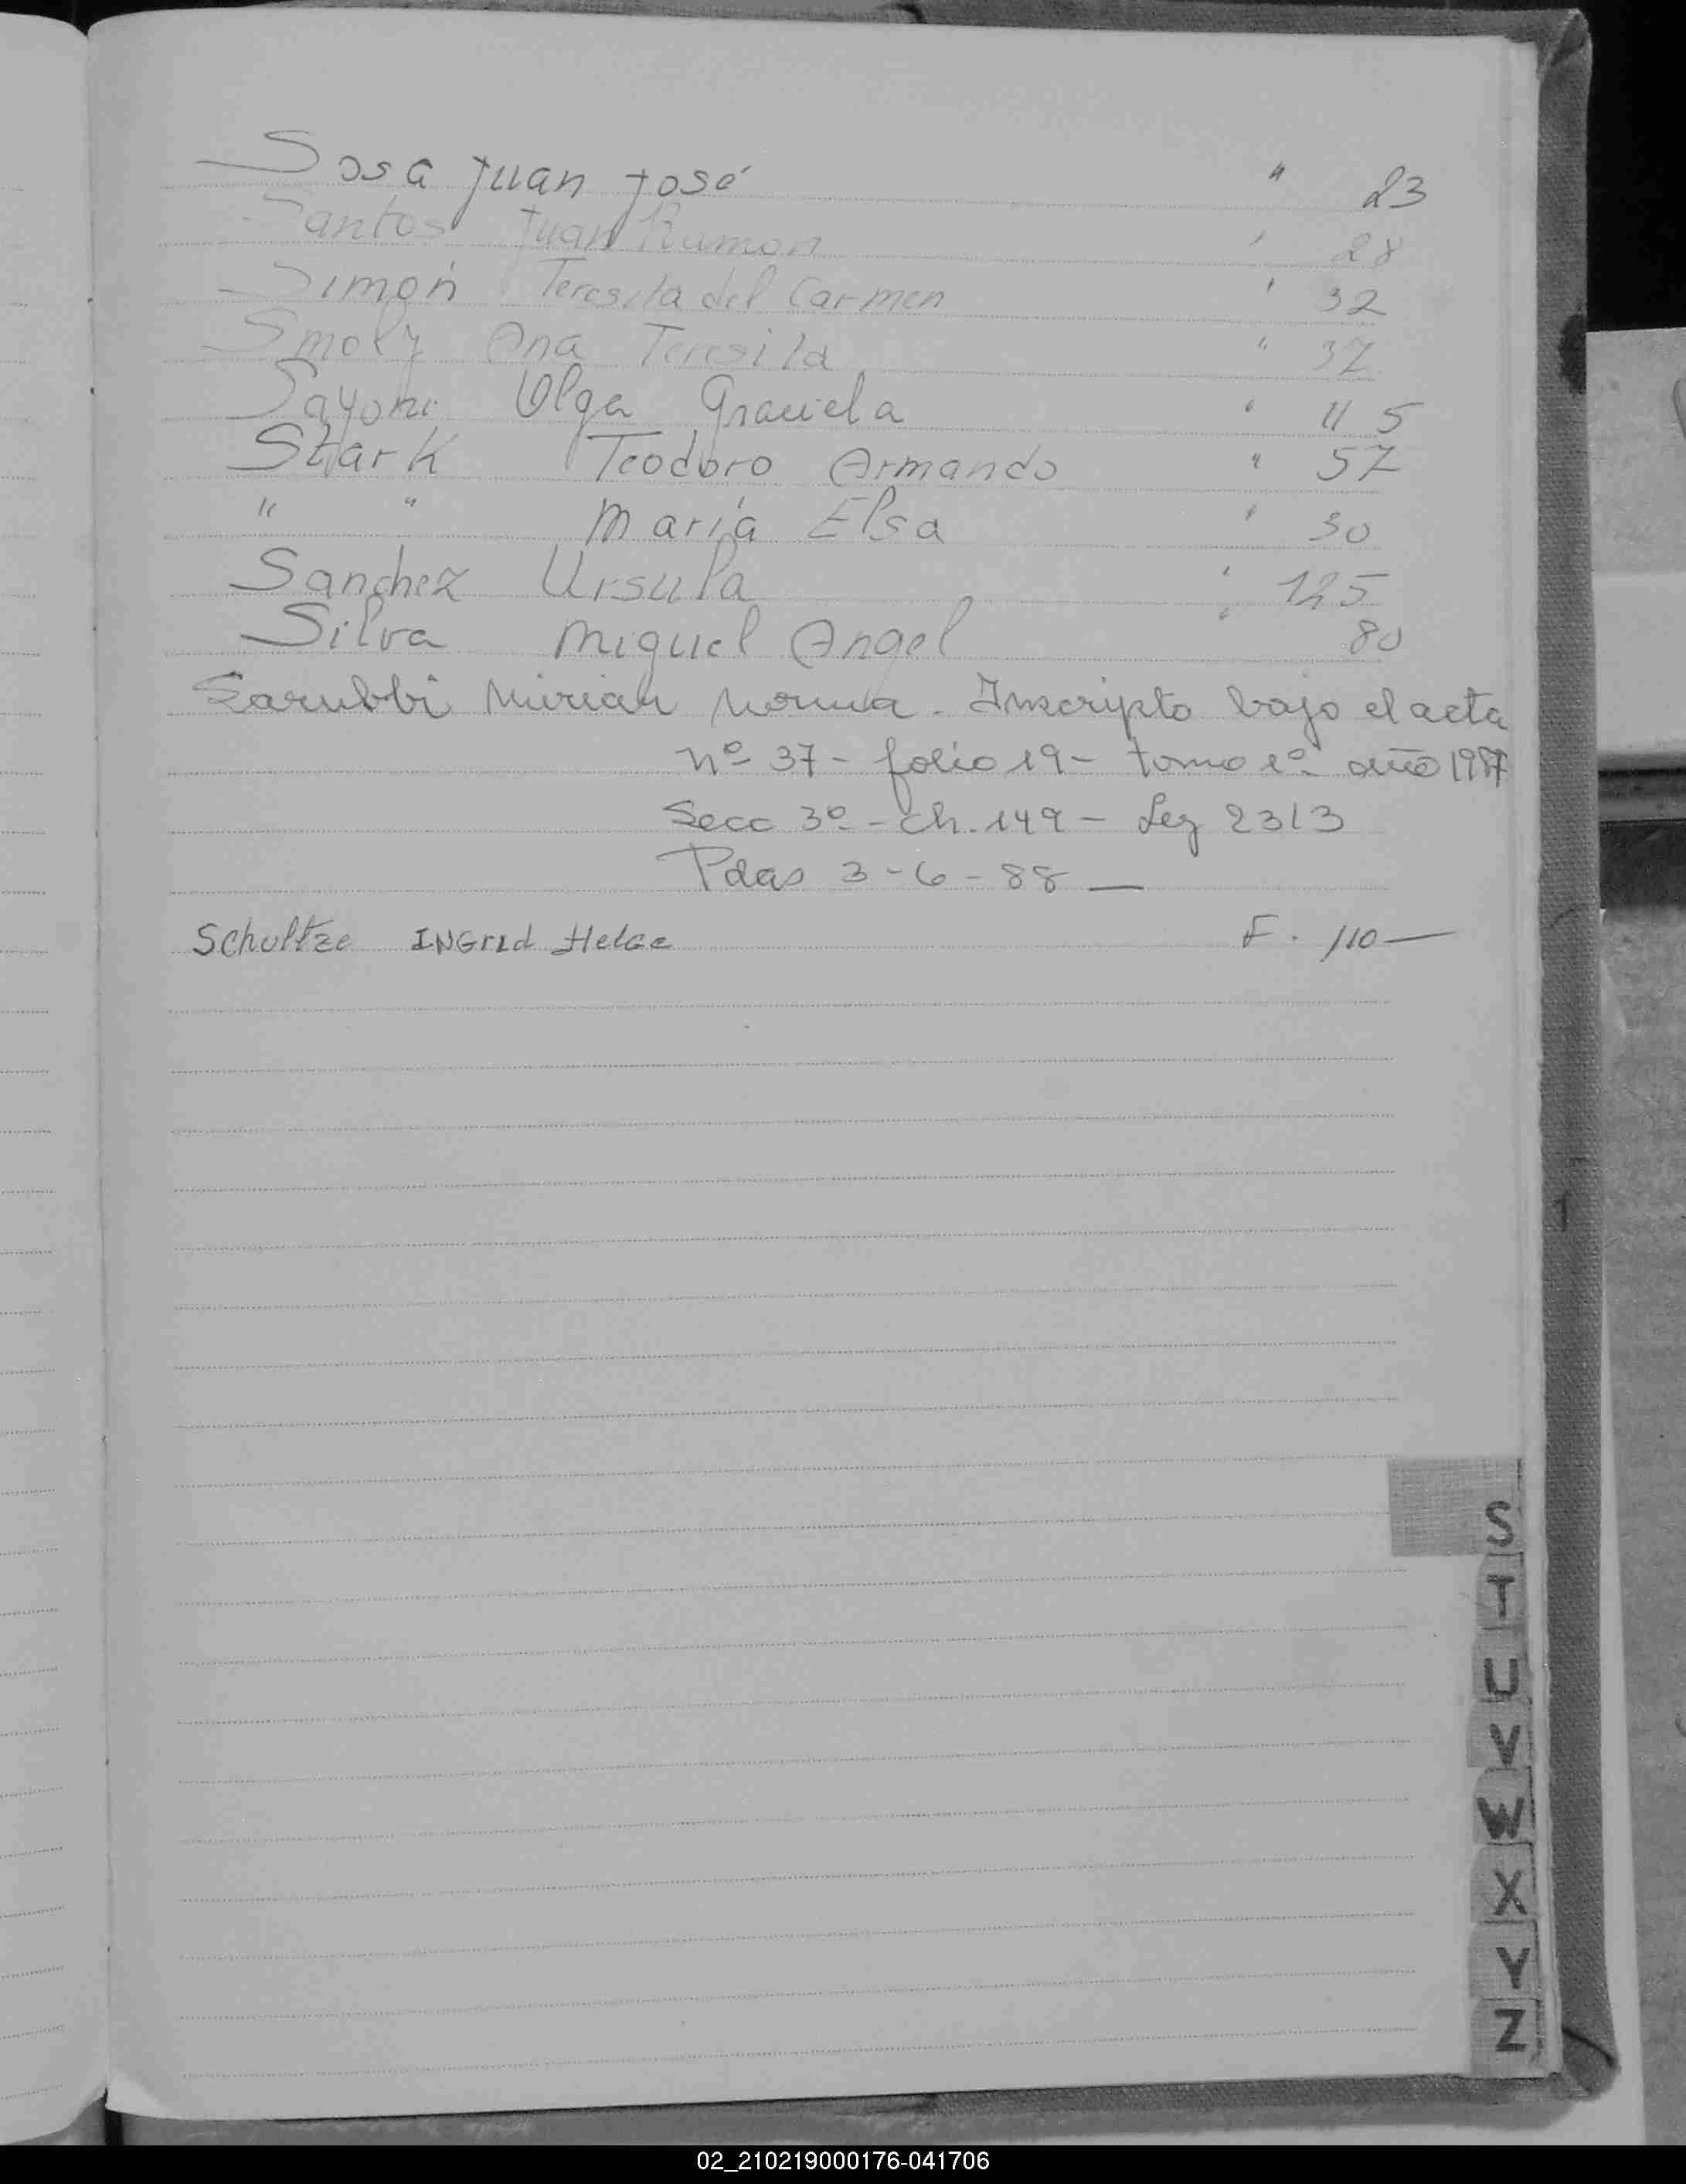 Sosa Juan José " 23
Santos Juan Ramon " 28
Simón Teresita del Carmen " 32
Smoly Ana Teresita " 37
Olga Graciela " 115
Stark Teodoro Armando " 57
" " María Elsa " 30
Sanchez Ursula " 125
Silva Miguel Angel " 80
Sarubbi Mirian Norma. Inscripto bajo el acta
nº 37 - folio 19 - tomo 1º año 1987
Secc 3º - Ch. 149 - Leg 2313
Pdas 3-6-88 —
Schultze INGrId Helga F. 110 —
S
T
U
V
W
X
Y
Z
02_210219000176-041706